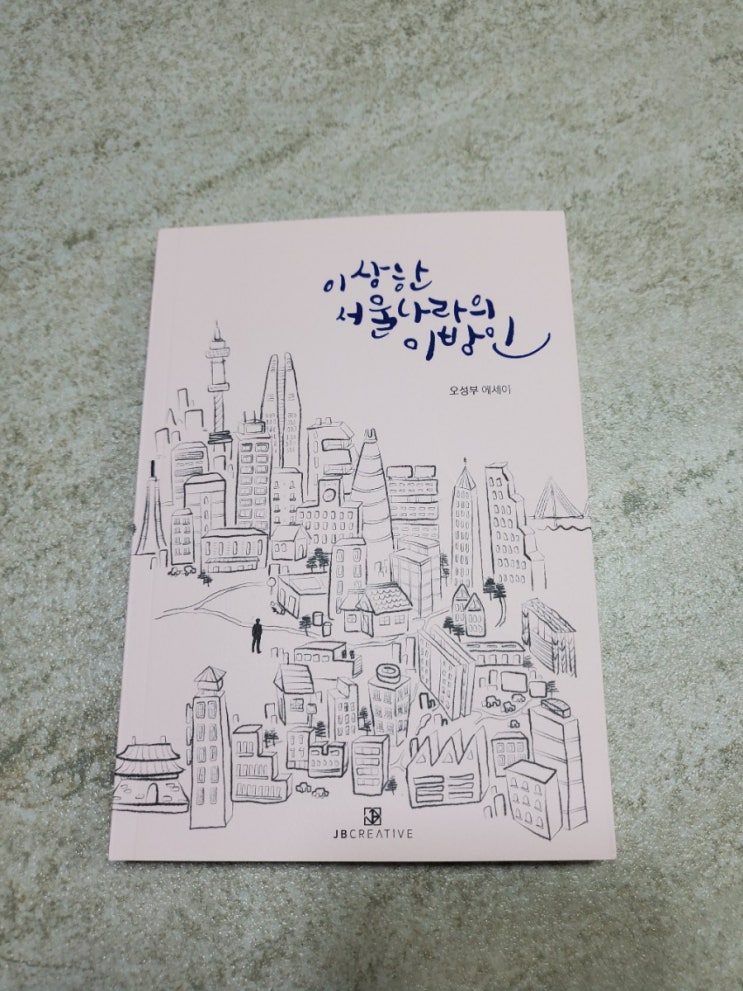 이상한
서울나라의
이방인
오성부 에세이
JBCREATIVE